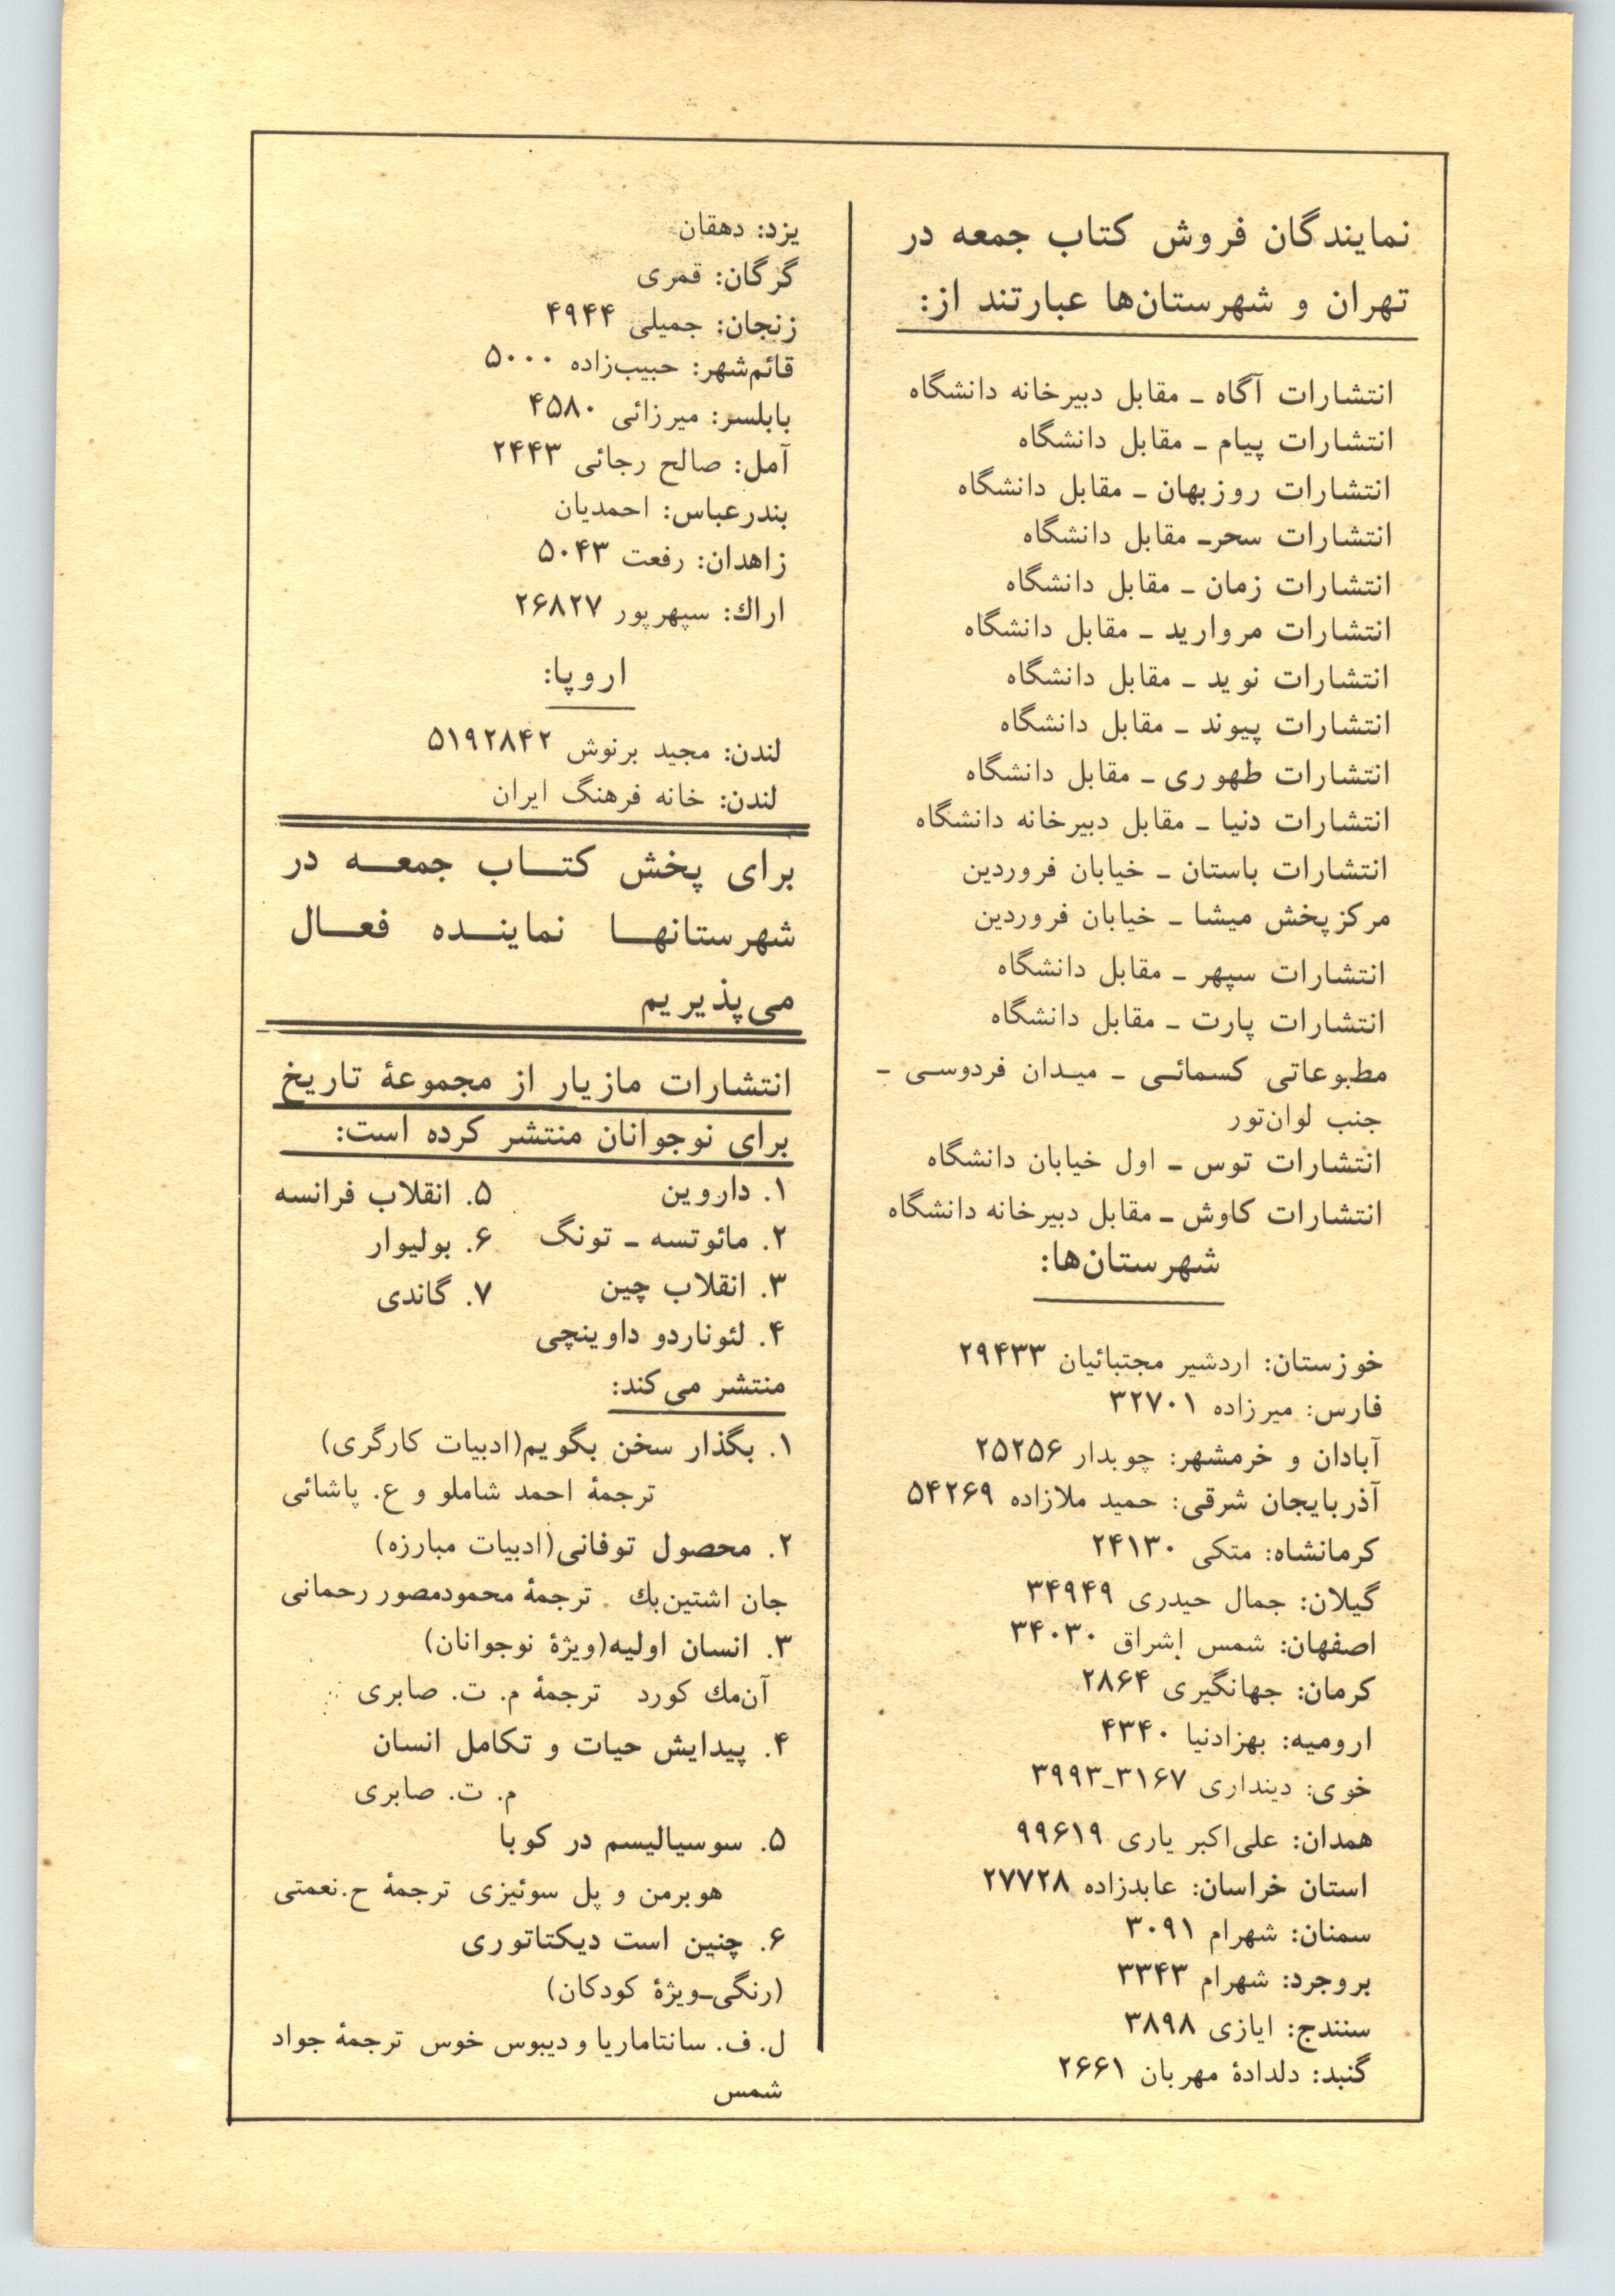 نمایندگان فروش کتاب جمعه در
تهران و شهرستان‌ها عبارتند از:
انتشارات آگاه ـ مقابل دبیرخانه دانشگاه
انتشارات پیام ـ مقابل دانشگاه
انتشارات روزبهان ـ مقابل دانشگاه
انتشارات سحرـ مقابل دانشگاه
انتشارات زمان ـ مقابل دانشگاه
انتشارات مروارید ـ مقابل دانشگاه
انتشارات نوید ـ مقابل دانشگاه
انتشارات پیوند ـ مقابل دانشگاه
انتشارات طهوری ـ مقابل دانشگاه
انتشارات دنیا ـ مقابل دبیرخانه دانشگاه
انتشارات باستان ـ خیابان فروردین
مرکزپخش میشا ـ خیابان فروردین
انتشارات سپهر ـ مقابل دانشگاه
انتشارات پارت ـ مقابل دانشگاه
مطبوعاتی کسمائـی ـ میـدان فردوسـی ـ
جنب لوان‌تور
انتشارات توس ـ اول خیابان دانشگاه
انتشارات کاوش ـ مقابل دبیرخانه دانشگاه
شهرستان‌ها:
خوزستان: اردشیر مجتبائیان ۲۹۴۳۳
فارس: میرزاده ۳۲۷۰۱
آبادان و خرمشهر: چوبدار ۲۵۲۵۶
آذربایجان شرقی: حمید ملازاده ۵۴۲۶۹
کرمانشاه: متکی ۲۴۱۳۰
گیلان: جمال حیدری ۳۴۹۴۹
اصفهان: شمس إشراق ۳۴۰۳۰
کرمان: جهانگیری ۲۸۶۴
ارومیه: بهزادنیا ۴۳۴۰
خوی: دینداری ۳۱۶۷ـ۳۹۹۳
همدان: علی‌اکبر یاری ۹۹۶۱۹
استان خراسان: عابدزاده ۲۷۷۲۸
سمنان: شهرام ۳۰۹۱
بروجرد: شهرام ۳۳۴۳
سنندج: ایازی ۳۸۹۸
گنبد: دلدادهٔ مهربان ۲۶۶۱
یزد: دهقان
گرگان: قمری
زنجان: جمیلی ۴۹۴۴
قائم‌شهر: حبیب‌زاده ۵۰۰۰
بابلسر: میرزائی ۴۵۸۰
آمل: صالح رجائی ۲۴۴۳
بندرعباس: احمدیان
زاهدان: رفعت ۵۰۴۳
اراك: سپهرپور ۲۶۸۲۷
اروپا:
لندن: مجید برنوش ۵۱۹۲۸۴۲
لندن: خانه فرهنگ ایران
برای پخش کتـــاب جمعـــه در
شهرستانهـــا نماینـــده فعـــال
می‌پذیریم
انتشارات مازیار از مجموعهٔ تاریخ
برای نوجوانان منتشر کرده است:
۱. داروین
۲. مائوتسه ـ تونگ
۳. انقلاب چین
۴. لئوناردو داوینچی
۵. انقلاب فرانسه
۶. بولیوار
۷. گاندی
منتشر می‌کند:
۱. بگذار سخن بگویم(ادبیات کارگری)
ترجمهٔ احمد شاملو و ع. پاشائی
۲. محصول توفانی(ادبیات مبارزه)
جان اشتین‌بك ترجمهٔ محمودمصور رحمانی
۳. انسان اولیه(ویژهٔ نوجوانان)
آن‌مك كورد ترجمهٔ م. ت. صابری
۴. پیدایش حیات و تکامل انسان
م. ت. صابری
۵. سوسیالیسم در کوبا
هوبرمن و پل سوئیزی ترجمهٔ ح.نعمتی
۶. چنین است دیکتاتوری
(رنگی‌ـ‌ویژهٔ کودکان)
ل. ف. سانتاماریا و دیبوس خوس ترجمهٔ جواد
شمس